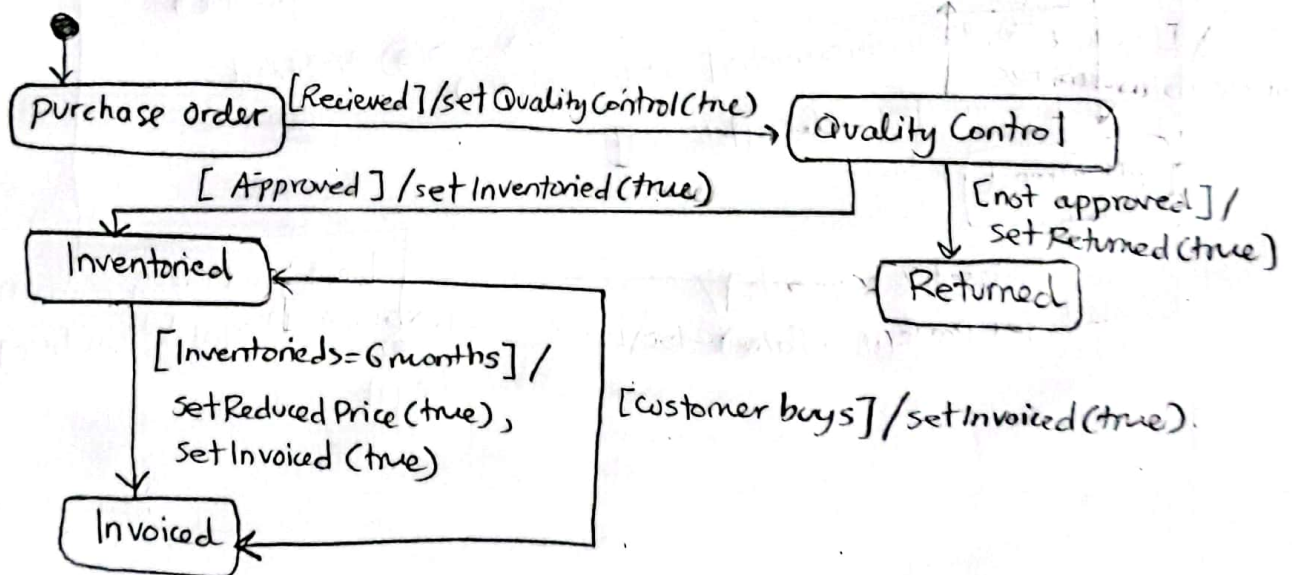 Purchase Order
[Recieved]/setQualityControl(true)
Quality Control
[Approved]/setInventoried(true)
[not approved]/
setReturned(true)
Inventoried
Returned
[Inventorieds=6months]/
setReducedPrice(true),
setInvoiced(true)
[customer buys]/setInvoiced(true).
Invoiced